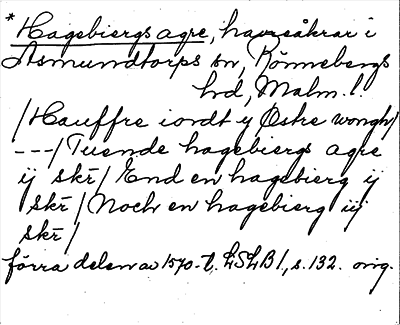 * Hagebiergs agre, havreåkrar i
Asmundtorps sn, Rönnebergs
hrd, Malm. l.
/Hauffre iordt ij Østre wongh/
---/Tuende hagebiergs agre
ij skr̄/ End en hagebierg ij
skr̄/ Noch en hagebierg iij
skr̄/
förra delen av 1570-t. LSLB 1, s. 132. orig.